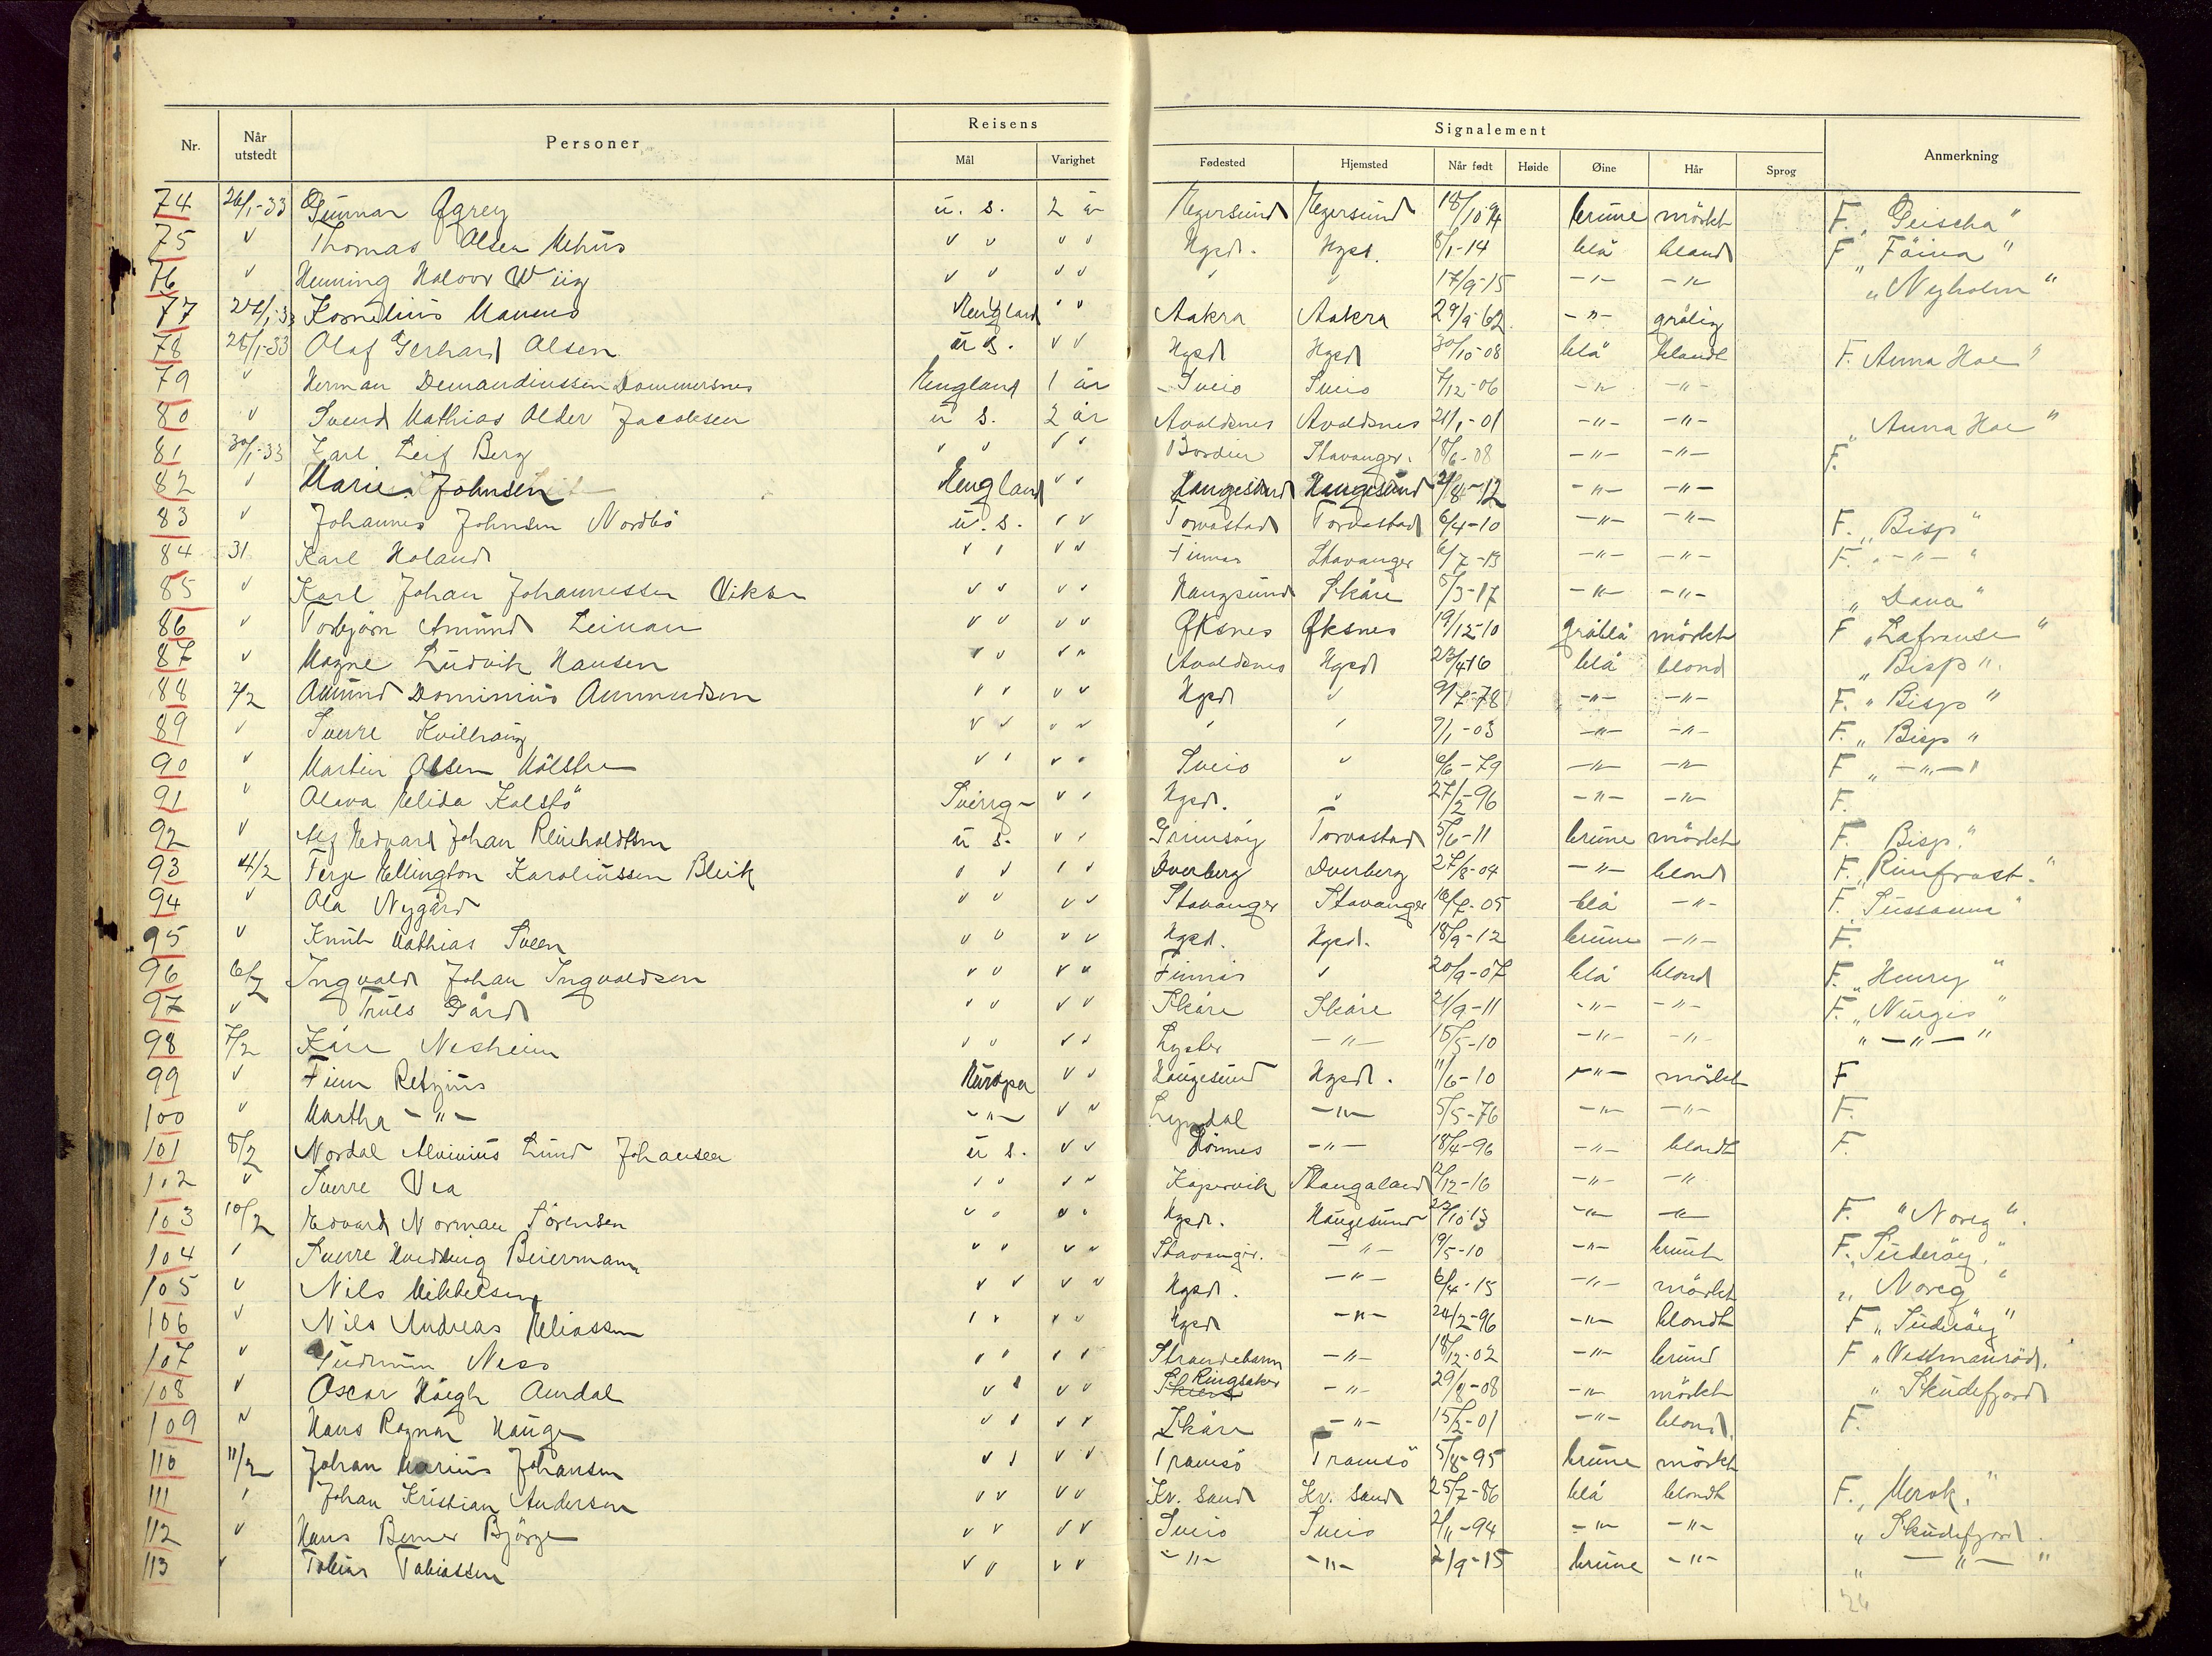 Nr. Når utstedt Personer Reisens Mål Varighet Fødested Hjemsted Signalement Når født Høide Øine Hår Sprog Anmerkning
74 26/1-33 Gunnar Ogrey u. s. 2 år Egersund Egersund 18/10 brune mörkt F. „Geischa"
75 " Thomas Olsen Mehus " " " " Hgsd. Hgsd. 8/1-14 blå blond F „Fäina"
76 " Henning Halvor Wiig " " " " " " 17/9-15 -"- -"- „Nyholm"
77 27/1-33 Kornelius Mannes England " " Aakra Aakra 29/9-62. -"- grålig
78 28/1-33 Olaf Gerhard Olsen u s. " " Hgsd Hgsd 30/10-08 blå blondt F. Anna Hoe"
79 " Herman Demandiussen Dommersnes England 1 år Sveio Sveio 7/12-06 -"- -"-
80 " Svend Mathias Older Jacobsen u s. 2 år Avaldsnes Avaldsnes 21/1-01 -"- -"- „Anna Hoe"
81 30/1-33 Karl Leif Berg " " " " Stavanger. 18/6-08 -"- -"- F.
82 " Marie Johnsen England " " Haugesund Haugesund -12 -"- -"-
83 " Johannes Johnsen Nordbö u. s. " " Torvastad Torvastad 6/4-10 -"- -"- F. „Bisp"
84 31 Karl Holand " " " " Stavanger 6/7-13 -"- -"- F. „-"-"
85 " Karl Johan Johannessen Viksen " " " " Haugsund Skåre 5/3-17 -"- -"- „Dana"
86 " Torbjörn Amund Leinan " " " " Öksnes Öksnes 19/12-10 gråblå mörkt F „Lafranse"
87 " Magne Ludvik Hansen " " " " Avaldsnes Hgsd 23/4-16 blå blond „Bisp".
88 2/2 Amund Dominius Aanmundsen " " " " Hgsd " 9/7-78 -"- -"- F. "Bisp"
89 " Sverre Kvilhaug " " " " " " 9/1-03 -"- -"- F. „Bisp"
90 " Martin Olsen Mölstre " " " " Sveio " 6/6-79 -"- -"- F „-"-"
91 " Olava Elida Kolstö Sverig- " " Hgsd. " 27/2-96 -"- -"- F.
92 " Alf Edvard Johan Reinholdtsen u s. " " Grimsöy Torvastad 5/6-11 brune mörkt F. Bisp."
93 4/2 Terje Ellington Karoliussen Bleik " " " " Dverberg Dverberg 27/8-04 -"- blond F. „Rimfrost."
94 " Ola Nygård " " " " Stavanger Stavanger -05 blå -"- F. „Sussanna"
95 " Knut Mathias Sveen " " " " Hgsd. Hgsd. 18/9-12 brune -"- F.
96 6/2 Ingvald Johan Ingvaldsen " " " " " 20/9-07 blå blond F. „Henry"
97 " Truls Gård " " " " Skåre Skåre 21/9-11 -"- -"- F. „Nurgis"
98 7/2 Kåre Nesheim " " " " Lyster -"- 15/5-10 -"- -"- „-"-"
99 " Finn Retzius Europa " " Haugesund Hgsd. 11/6-10 -"- mörkt F
100 " Martha -"- -"- " " Lyngdal -"- 5/5-76 -"- -"- F.
101 8/2 Nordal Alvinius Lund Johansen u s. " " Dönnes -"- 18/4-96 -"- blondt F.
102 " Sverre Vea " " " " Kopervik Stangaland 12/12-16 -"- -"-
103 10/2 Edvard Norman Sörensen " " " " Hgsd. Haugesund 22/10 13 -"- -"- F. "Noreg".
104 " Sverre Beiermann " " " " Stavanger. -"- 19/5-10 -"- brunt F. „Suderöy."
105 " Nils Mikkelsen " " " " Hgsd. -"- 6/4-15 -"- mörkt „Noreg"
106 " Nils Andreas Eliassen " " " " Hgsd -"- 24/2-96 -"- blondt F „Suderöy"
107 " Gudmun Ness " " " " Strandebarm -"- 18/12-02 -"- brund F „Vestmanröd.
108 " Oscar Haugh Aurdal " " " " Ringsaker -"- 29/8-08 -"- mörkt „Skudefjord
109 " Hans Ragnar Hauge " " " " Skåre -"- 15/2-01 -"- blond. F.
110 11/2 Johan Marius Johansen " " " " Tromsö Tromsö 5/8-95 brune mörkt
111 " Johan Kristian Andersen " " " " Kr. Sand Kr. Sand 25/7-86 blå blondt F. „Merok."
112 " Hans Berner Bjørge " " " " Sveio Sveio 2/11-94 -"- -"- „Skudefjord.
113 " Tobias Tobiassen " " " " -"- -"- 2/9-15 brune -"- „-"-"
26